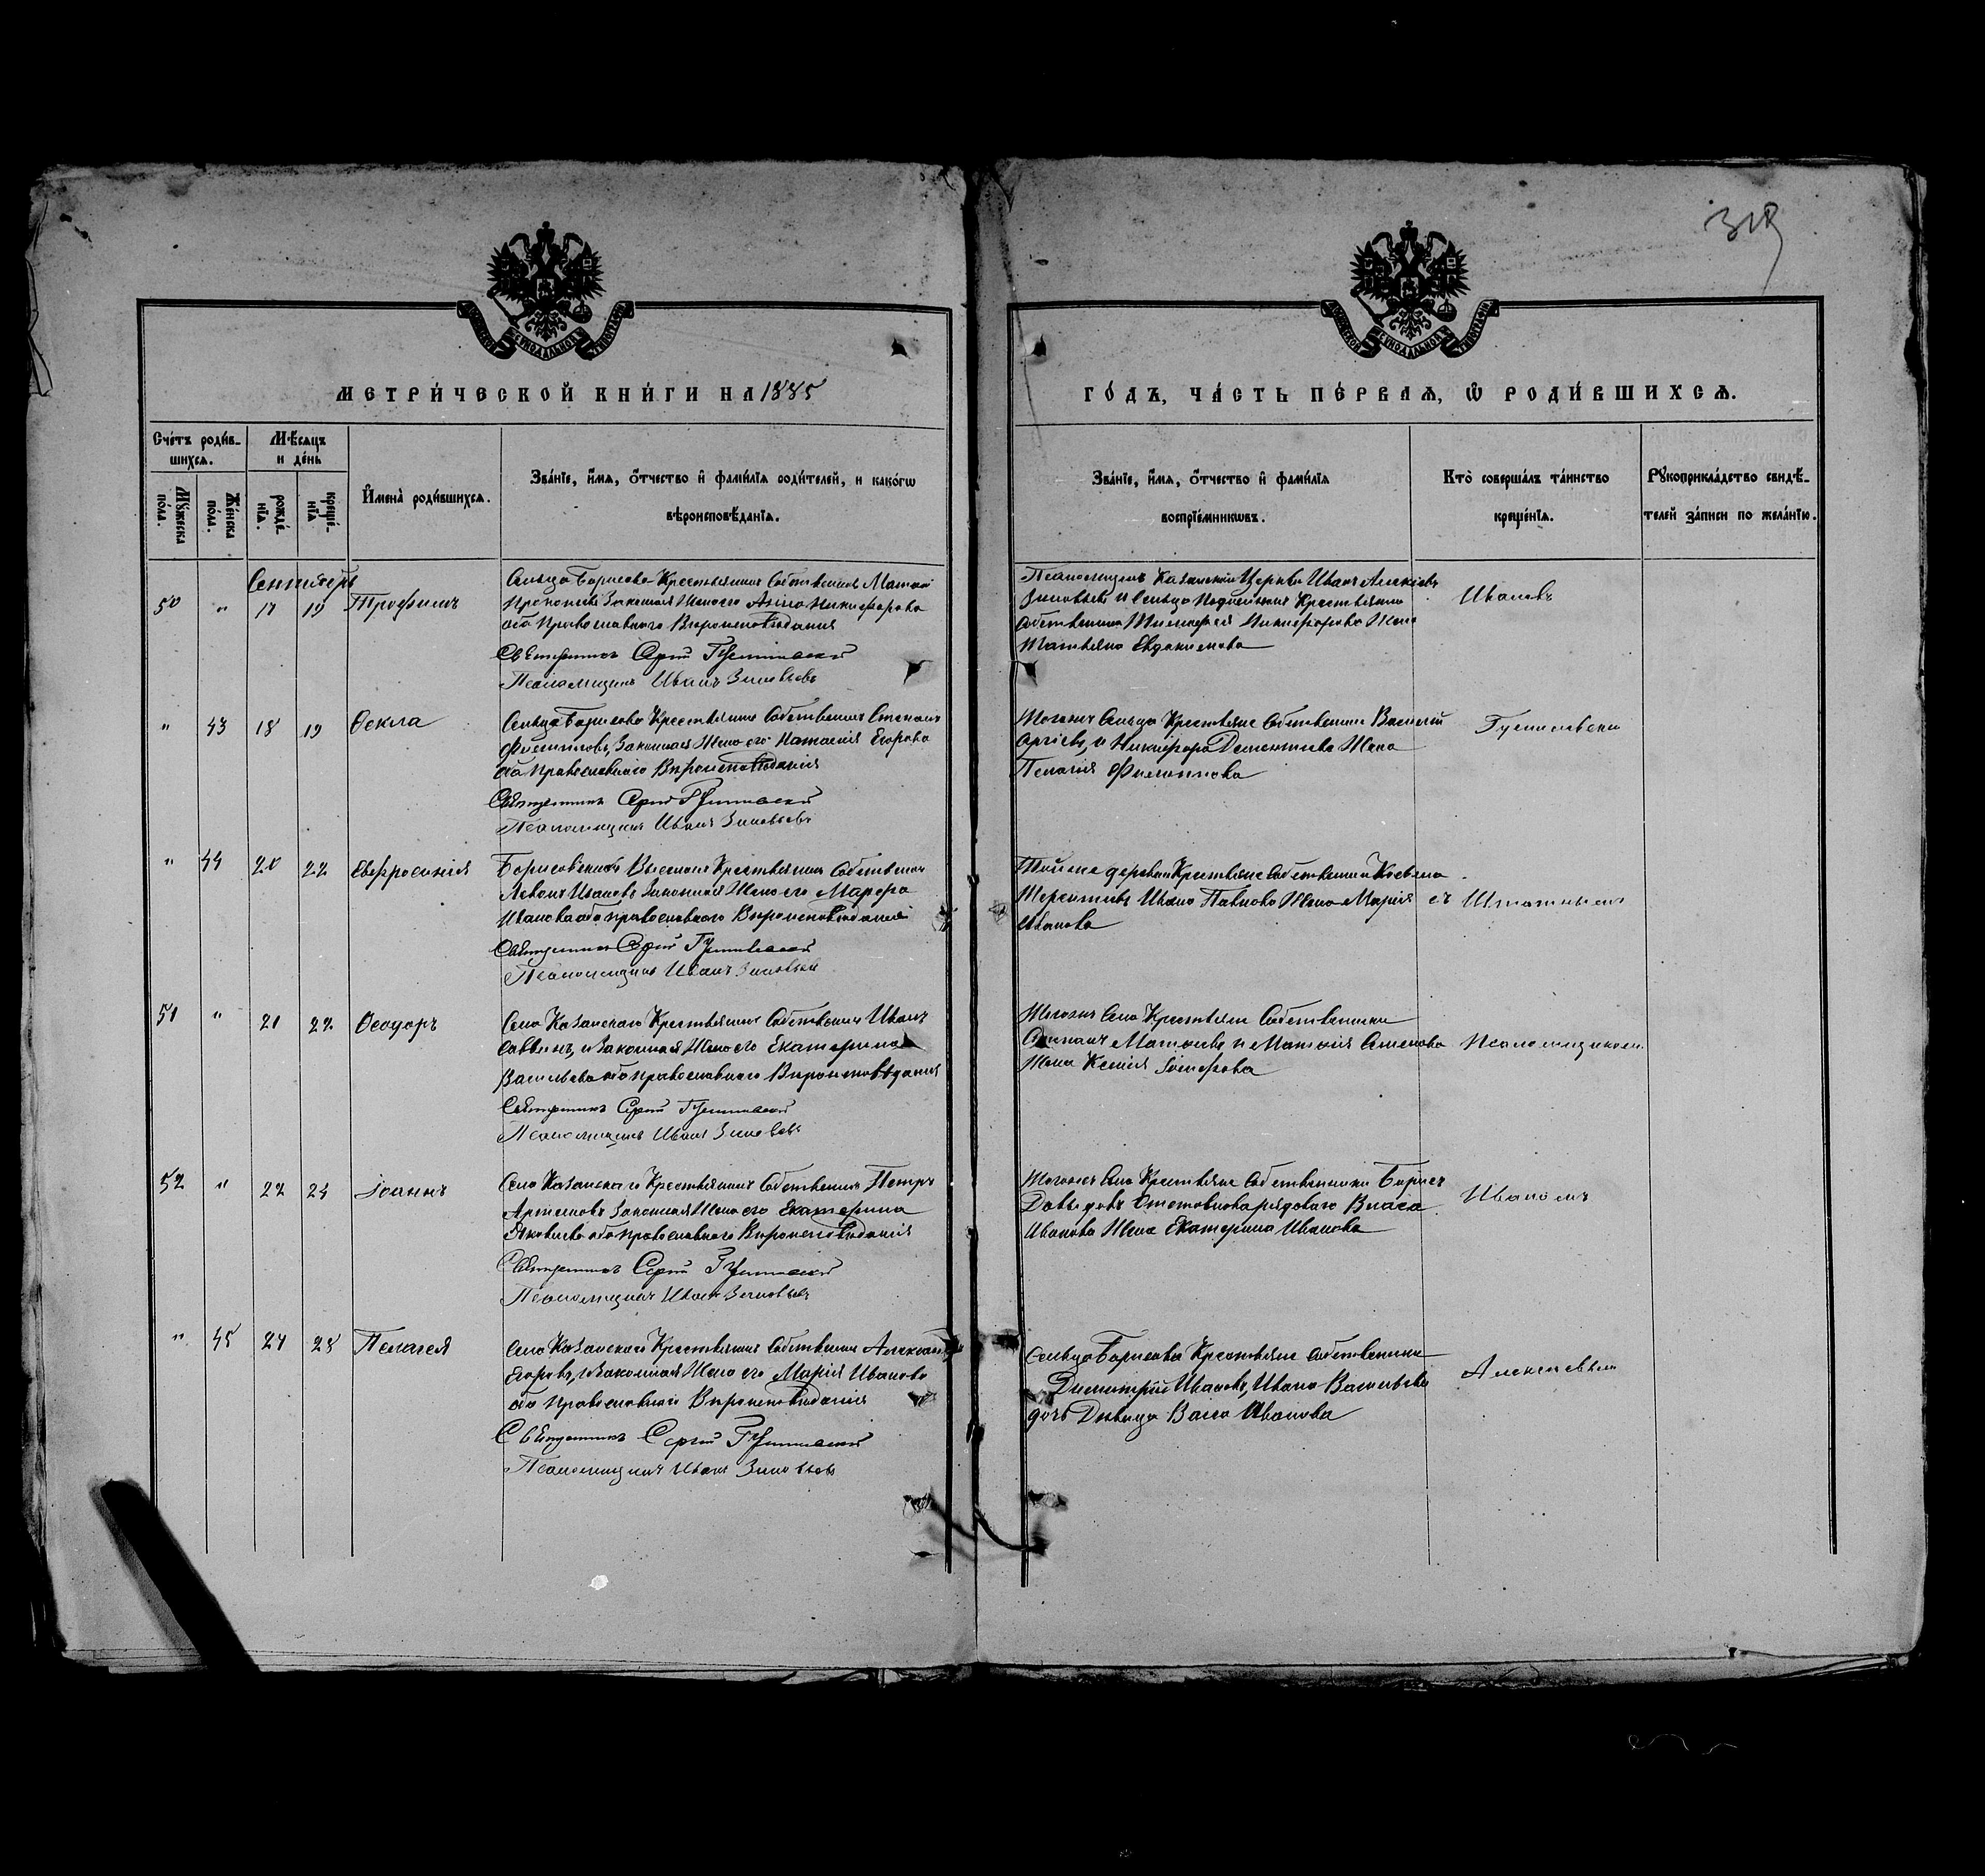 319
МЕТРИ́ЧЕСКОЙ КНИ́ГИ НА 1885
ГО́ДЪ, ЧА́СТЬ ПЕ́РВАѦ, Ѡ҆ РОДИ́ВШИХСѦ.
Сче́тъ роди́в-
шихсѧ.
Мꙋжеска по́ла.
Же́нска по́ла.
Мѣ́сѧцъ и де́нь
рожде́-
нїѧ.
креще́-
нїѧ
И҆мена̀ роди́вшихсѧ.
Зва́нїе, и҆́мѧ, ѻ҆́тчество и҆ фами́лїѧ роди́телей, и како́гѡ
вѣроисповѣ́данїѧ.
Зва́нїе, и҆́мѧ, ѻ҆́тчество и҆ фами́лїѧ
воспрїе́мникѡвъ.
Кто̀ соверша́лъ та́инство
креще́нїѧ.
Рꙋкоприкла́дство свидѣ́-
телей за́писи по жела́нїю.
Сентябрь
50 " 17 19 Трофимъ
Сельца Борисова Крестьянинъ Собственникъ Матвей
Прокопьевъ Законная Жена его Анна Никифорова
оба Православнаго Вѣроисповѣданія
Священникъ Сергій
Псаломщикъ Иванъ Зиновьевъ
Псаломщикъ Казанской Церкви Иванъ Алексіевъ
Зиновьевъ и Сельца Крестьянина
Собственника Никифорова Жена
Татьяна Евдокимова
Ивановъ
" 43 18 19 Ѳекла
Сельца Борисова Крестьянинъ Собственникъ Степанъ
Филипповъ, Законная Жена его Наталія Егорова
оба Православнаго Вѣроисповѣданія
Священникъ Сергій
Псаломщикъ Иванъ Зиновьевъ
Тогожъ Сельца Крестьяне Собственники Василій
и Никифора Дементьева Жена
Пелагія Филиппова
" 44 20 22 Евфросинія
Крестьянинъ Собственникъ
Левонъ Ивановъ Законная Жена его Марфа
Иванова оба православнаго Вѣроисповѣданія
Священникъ Сергій
Псаломщикъ Иванъ Зиновьевъ
Той же деревни Крестьяне Собственники Косьма
Терентьевъ Ивана Павлова Жена Марія
Иванова
съ Штатнымъ
51 " 21 22 Ѳеодоръ
Села Казанскаго Крестьянинъ Собственникъ Иванъ
Саввинъ, и Законная Жена его Екатерина
Васильева оба православнаго Вѣроисповѣданія
Священникъ Сергій
Псаломщикъ Иванъ Зиновьевъ
Тогожъ Села Крестьяне Собственники
Матвѣевъ и
Жена Ксенія
Псаломщикомъ
52 " 22 24 Іоаннъ
Села Казанскаго Крестьянинъ Собственникъ Петръ
Артемовъ Законная Жена его Екатерина
Яковлева оба православнаго Вѣроисповѣданія
Священникъ Сергій
Псаломщикъ Иванъ Зиновьевъ
Тогожъ Села Крестьяне Собственники Борисъ
Давыдовъ рядоваго Власа
Иванова Жена Екатерина Иванова
Иваномъ
" 45 24 28 Пелагея
Села Казанскаго Крестьянинъ Собственникъ
Егоровъ, и Законная Жена его Марія Иванова
оба православнаго Вѣроисповѣданія
Священникъ Сергій
Псаломщикъ Иванъ Зиновьевъ
Сельца Борисова Крестьяне Собственники
Димитрій Ивановъ, Ивана Васильева
дочь Дѣвица Васса Иванова
Алексѣевымъ